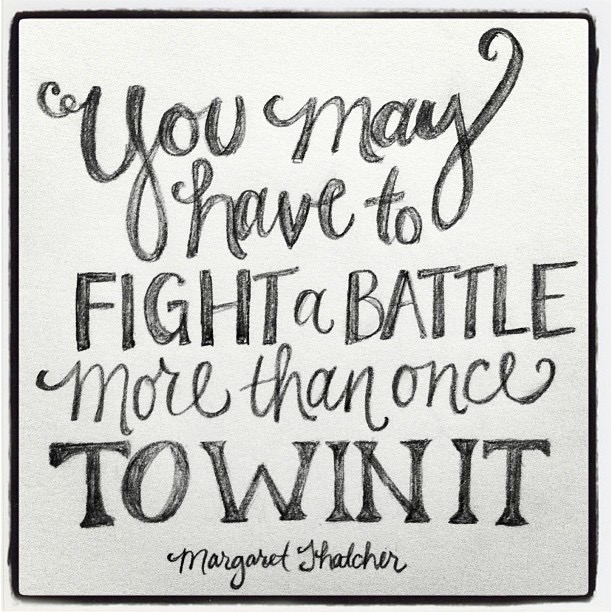 You may
have to
FIGHT a BATTLE
more than once
TO WIN IT
Margaret Thatcher